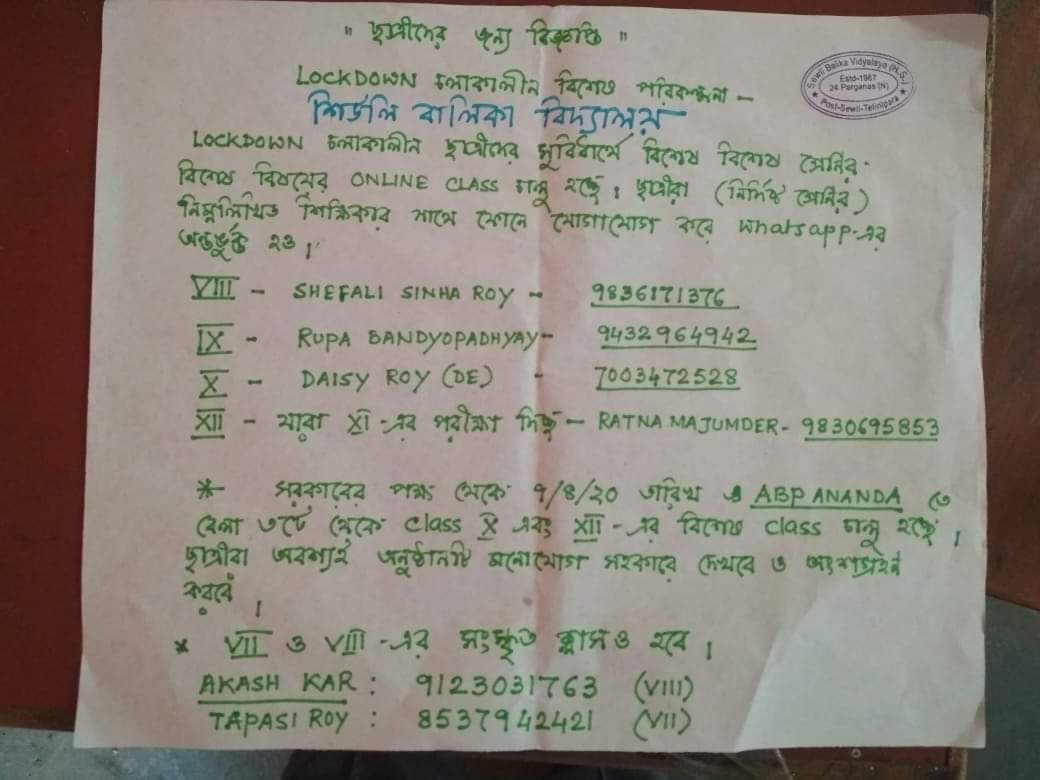 " ছাত্রীদের জন্য বিজ্ঞপ্তি "
LOCKDOWN চলাকালীন বিশেষ পরিকল্পনা –
শিউলি বালিকা বিদ্যালয়
LOCKDOWN চলাকালীন ছাত্রীদের সুবিধার্থে বিশেষ বিশেষ শ্রেনির
বিশেষ বিষয়ের ONLINE CLASS চালু হচ্ছে। ছাত্রীরা (নির্দিষ্ট শ্রেনির)
নিম্নলিখিত শিক্ষিকার সাথে ফোনে যোগাযোগ করে whatsapp-এর
অন্তর্ভুক্ত হও।
VIII – SHEFALI SINHA ROY – 9836171376
IX – RUPA BANDYOPADHYAY – 9432964942
X – DAISY ROY (DE) – 7003472528
XII – যারা XI-এর পরীক্ষা দিচ্ছ – RATNA MAJUMDER - 9830695853
* সরকারের পক্ষ থেকে ৭/৪/২০ তারিখ ABP ANANDA তে
বেলা ৩টে থেকে class X এবং XII-এর বিশেষ class চালু হচ্ছে।
ছাত্রীরা অবশ্যই অনুষ্ঠানটি মনোযোগ সহকারে দেখবে ও অংশগ্রহন
করবে।
* VII ও VIII-এর সংস্কৃত ক্লাসও হবে।
AKASH KAR : 9123031763 (VIII)
TAPASI ROY : 8537942421 (VII)
Sewli Balika Vidyalaya (H.S.)
Estd-1967
24 Parganas (N)
Post-Sewli-Telinipara